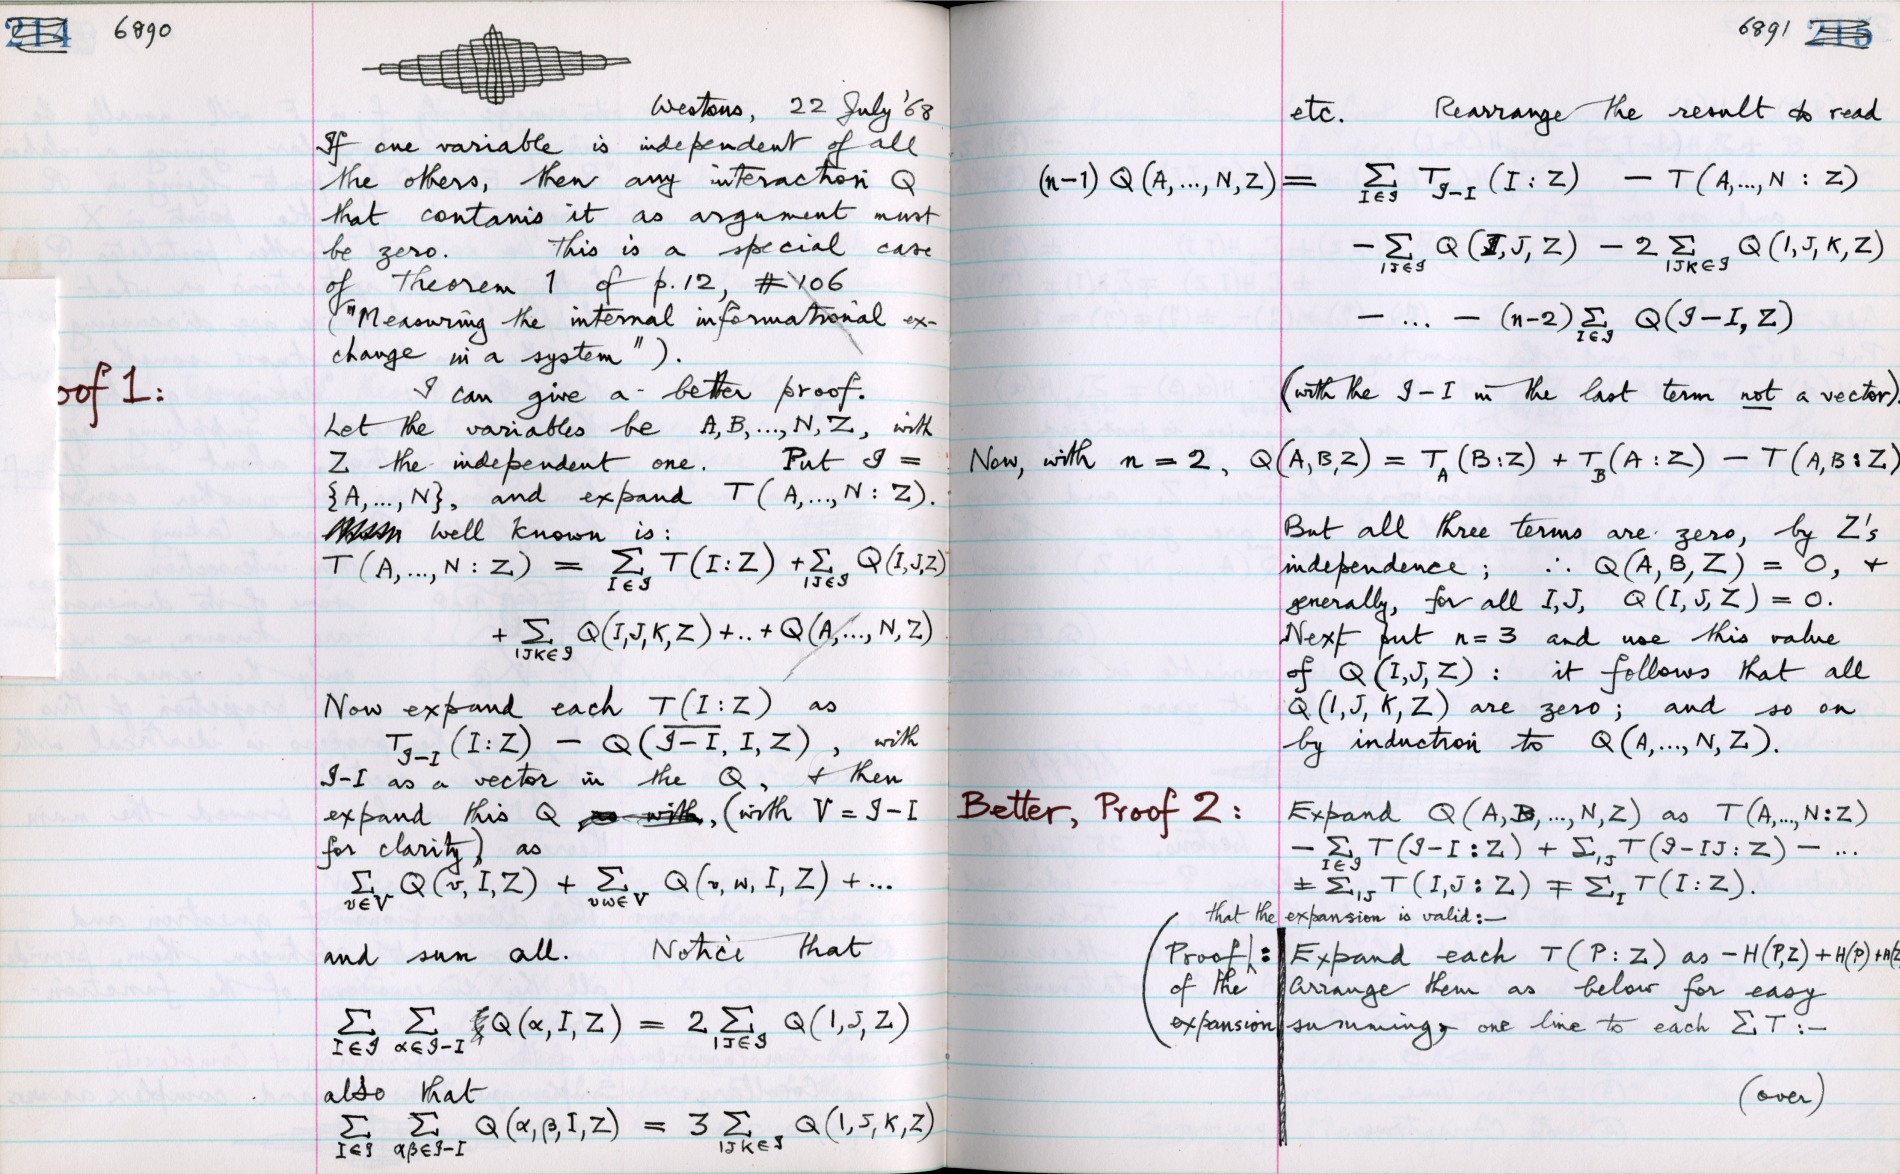 214 6890
Westons, 22 July '68
If one variable is independent of all
the others, then any interaction Q
that contains it as argument must
be zero. This is a special case
of Theorem 1 of p.12, #106
("Measuring the internal informational ex-
change in a system").
oof 1:
I can give a better proof.
Let the variables be A,B,...,N,Z, with
Z the independent one. Put 𝓘 =
{A,...,N}, and expand T(A,...,N : Z).
Well known is:
T(A,...,N : Z) = Σ_{I∈𝓘} T(I:Z) + Σ_{IJ∈𝓘} Q(I,J,Z)
+ Σ_{IJK∈𝓘} Q(I,J,K,Z) + .. + Q(A,...,N,Z)
Now expand each T(I:Z) as
T_{𝓘-I}(I:Z) - Q(\overline{𝓘-I}, I, Z), with
𝓘-I as a vector in the Q, & then
expand this Q, (with V = 𝓘-I
for clarity) as
Σ_{v∈V} Q(v, I, Z) + Σ_{vw∈V} Q(v, w, I, Z) + ...
and sum all. Notice that
Σ_{I∈𝓘} Σ_{α∈𝓘-I} Q(α, I, Z) = 2 Σ_{IJ∈𝓘} Q(I,J,Z)
also that
Σ_{I∈𝓘} Σ_{αβ∈𝓘-I} Q(α,β,I,Z) = 3 Σ_{IJK∈𝓘} Q(I,J,K,Z)
6891 215
etc. Rearrange the result to read
(n-1) Q(A,...,N,Z) = Σ_{I∈𝓘} T_{𝓘-I}(I:Z) - T(A,...,N : Z)
- Σ_{IJ∈𝓘} Q(I,J,Z) - 2 Σ_{IJK∈𝓘} Q(I,J,K,Z)
- ... - (n-2) Σ_{I∈𝓘} Q(𝓘-I, Z)
(with the 𝓘-I in the last term not a vector).
Now, with n = 2, Q(A,B,Z) = T_A(B:Z) + T_B(A:Z) - T(A,B:Z)
But all three terms are zero, by Z's
independence; ∴ Q(A,B,Z) = 0, +
generally, for all I,J, Q(I,J,Z) = 0.
Next put n=3 and use this value
of Q(I,J,Z): it follows that all
Q(I,J,K,Z) are zero; and so on
by induction to Q(A,...,N,Z).
Better, Proof 2: Expand Q(A,B,...,N,Z) as T(A,...,N:Z)
- Σ_{I∈𝓘} T(𝓘-I:Z) + Σ_{IJ} T(𝓘-IJ:Z) - ...
± Σ_{IJ} T(I,J:Z) ∓ Σ_I T(I:Z).
that the expansion is valid:—
(Proof: Expand each T(P:Z) as -H(P,Z)+H(P)+H(Z
of the Arrange them as below for easy
expansion summing, one line to each ΣT :—
(over)